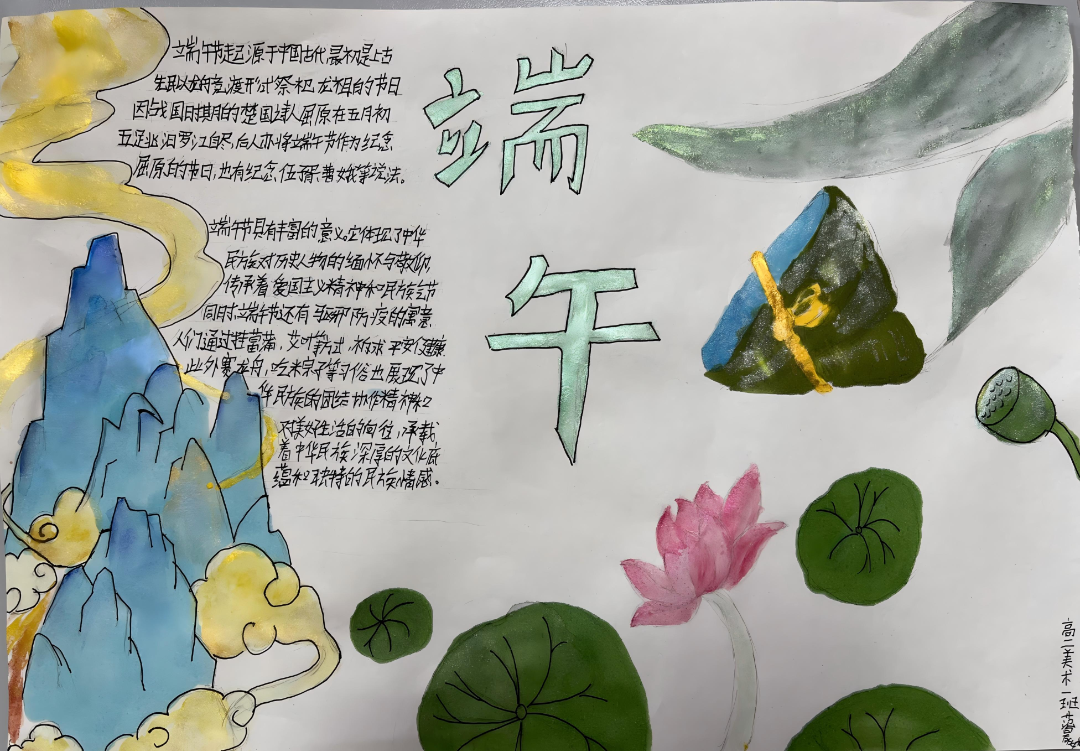 端午
端午节起源于中国古代,最初是上古
先民以龙舟竞渡形式祭祀龙祖的节日
因战国时期的楚国诗人屈原在五月初
五跳汨罗江自尽,后人亦将端午节作为纪念
屈原的节日,也有纪念伍子胥、曹娥等说法。
端午节具有丰富的意义。它体现了中华
民族对历史人物的缅怀与敬仰,
传承着爱国主义精神和民族气节
同时,端午节还有驱邪防疫的寓意,
人们通过挂菖蒲,艾叶等方式,祈求平安健康
此外赛龙舟,吃米粽子等习俗也展现了中
华民族的团结协作精神和
对美好生活的向往,承载
着中华民族深厚的文化底
蕴和独特的民族情感。
高二美术一班